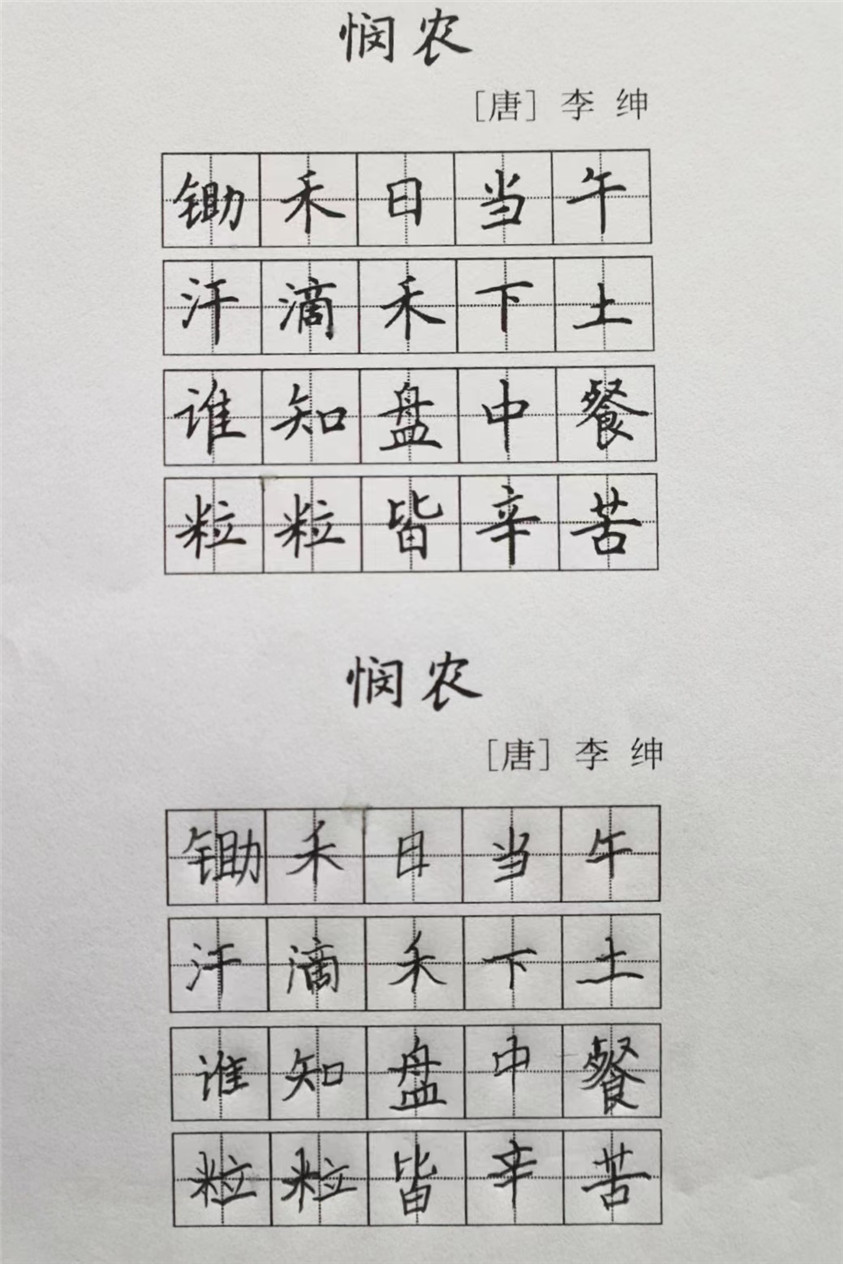 悯农
[唐] 李 绅
锄禾日当午
汗滴禾下土
谁知盘中餐
粒粒皆辛苦
悯农
[唐] 李 绅
锄禾日当午
汗滴禾下土
谁知盘中餐
粒粒皆辛苦